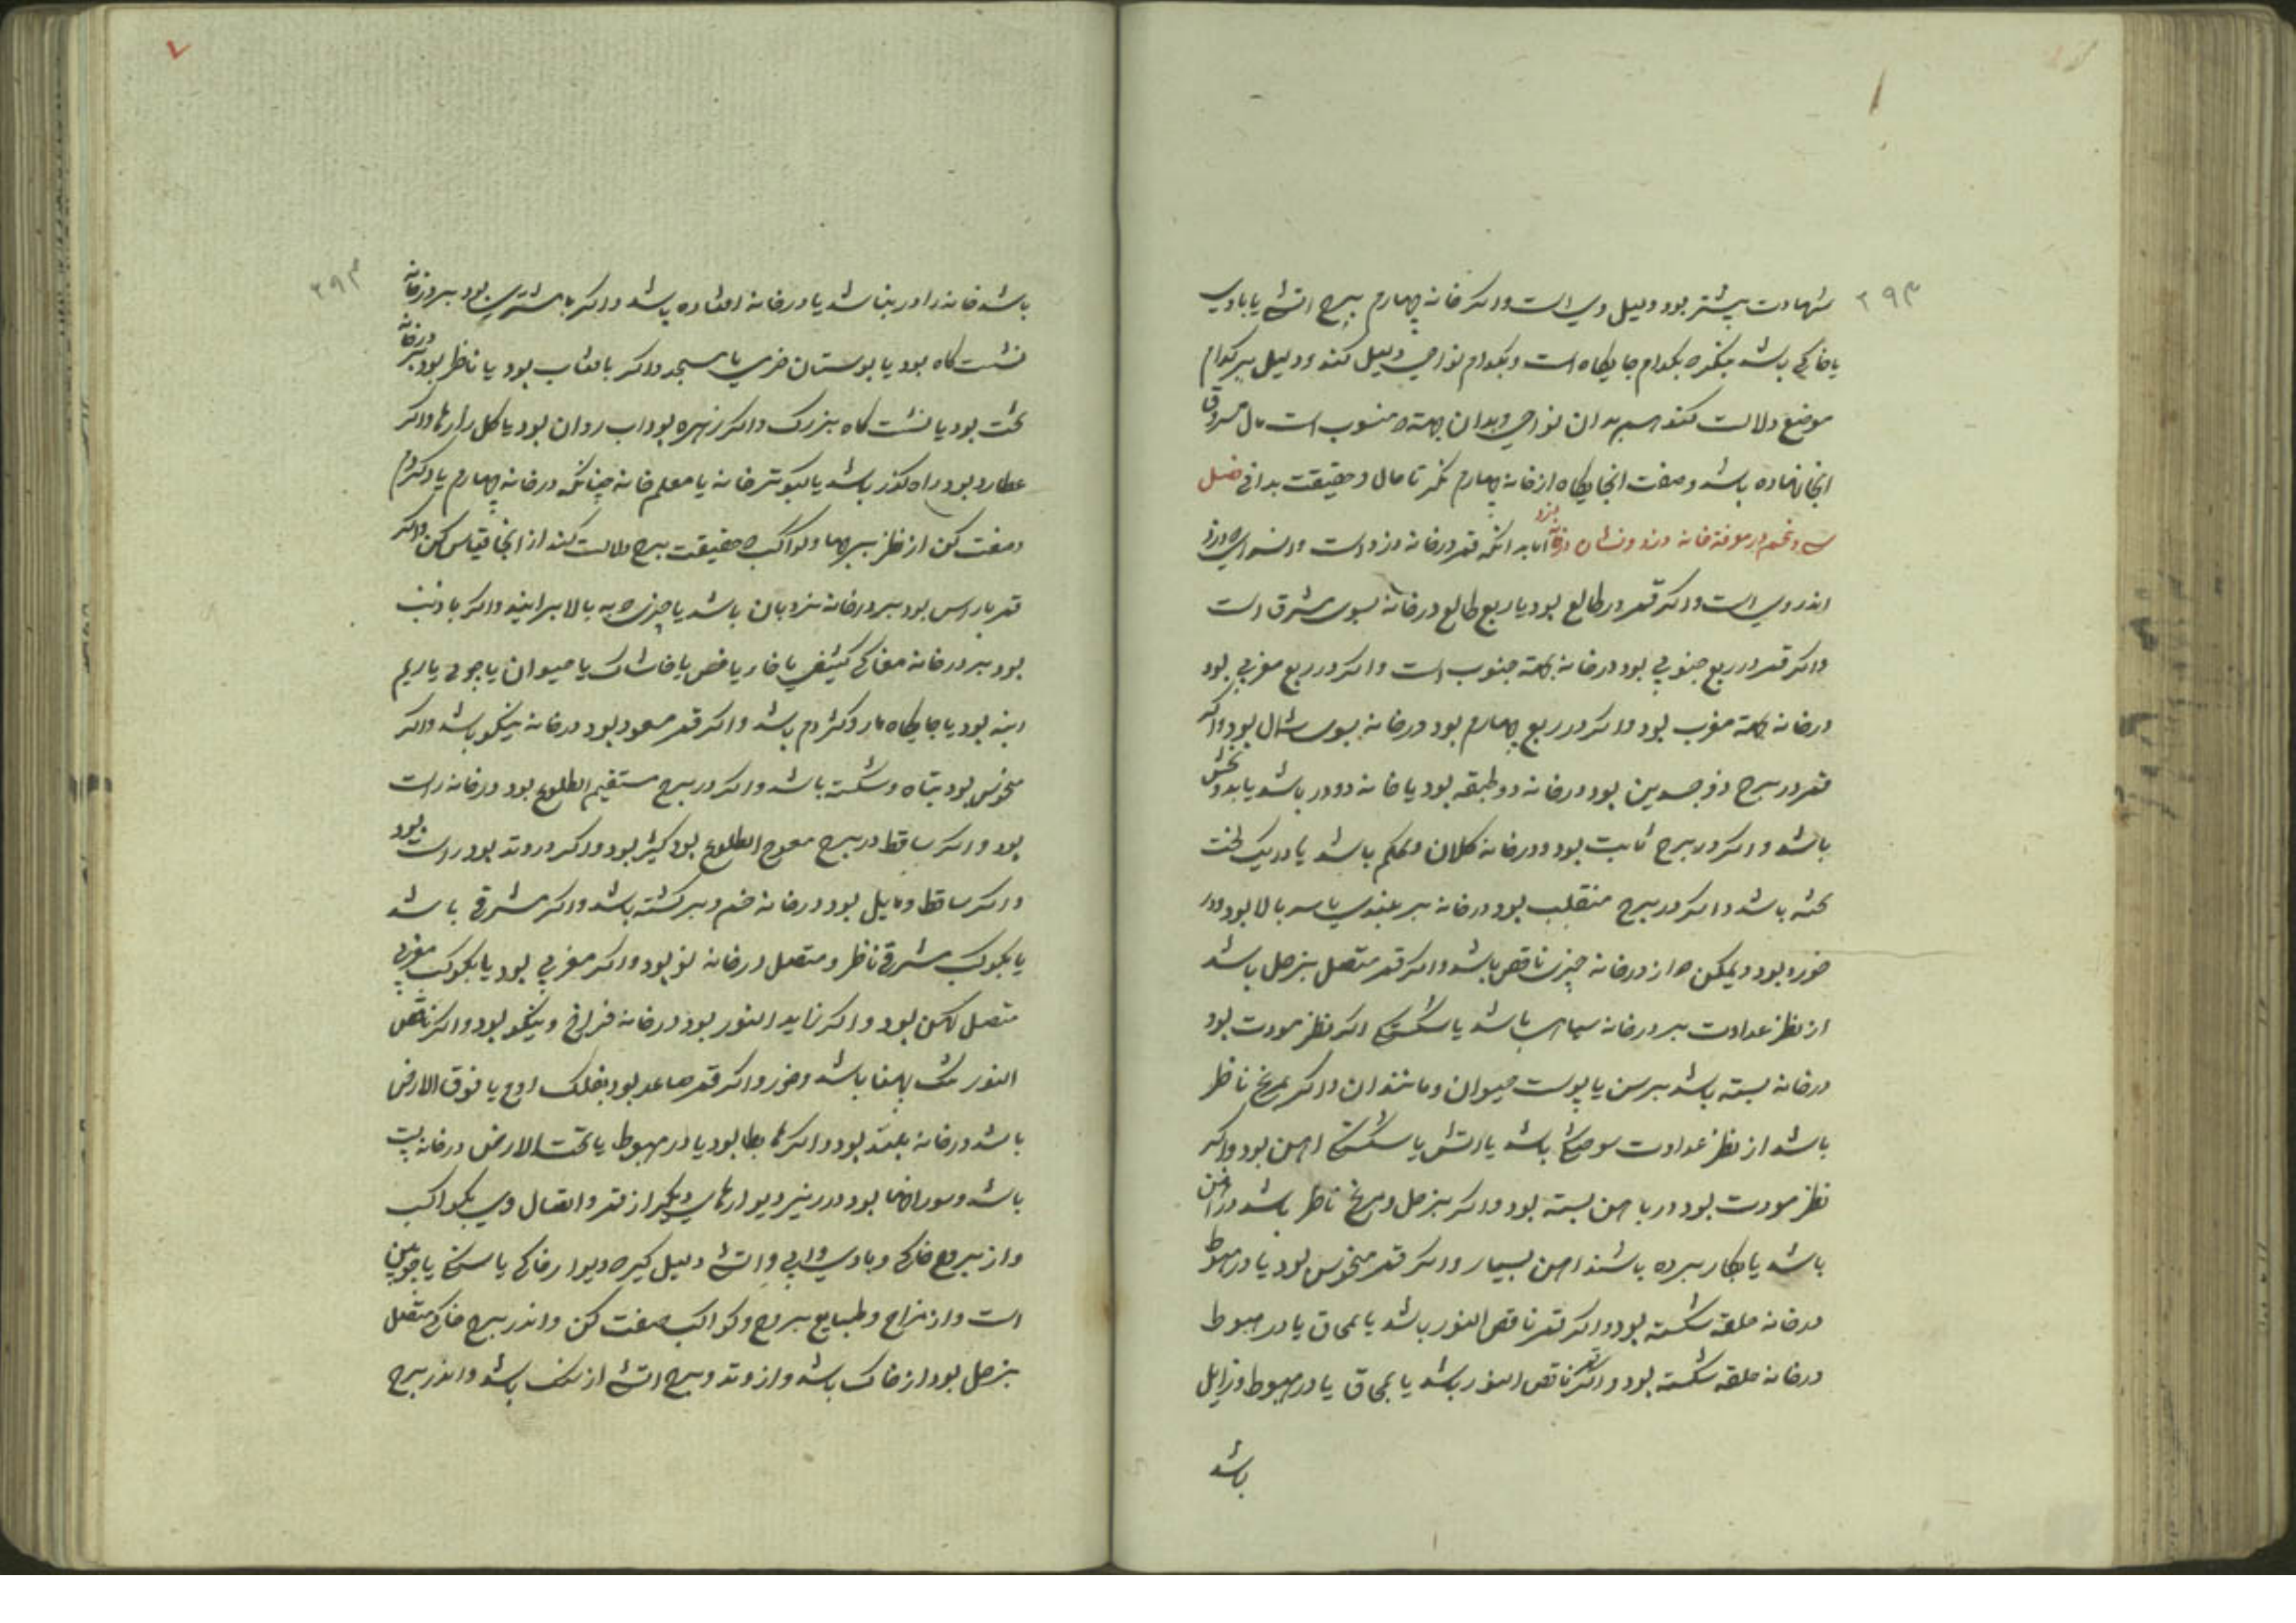 ۲۹۳
شهادت بیشتر بود دلیل وی است واکر خانه چهارم ببرج اتشی یا بادی
یا خاکی باشد بنکرد بکدام جایکاه است وبکدام نواحی دلیل کند ودلیل بر کدام
موضع دلالت کند هم بدان نواحی وبدان جهته منسوب است مال مسروق
انجا نهاده باشد وصفت انجایکاه از خانه چهارم نکر تا حال وحقیقت بدانی فصل
سی وپنجم در معرفة خانه دزد ونشان درخانه دزد اما بدانکه قمر درخانه دزد است
اندر وی است واکر قمر در طالع بود یا ربع طالع درخانه بسوی مشرق است
واکر قمر در ربع جنوبی بود درخانه بجهته جنوب است واکر در ربع مغربی بود
درخانه بجهته مغرب بود واکر در ربع چهارم بود درخانه بسوی شمال بود واکر
قمر در برج ذو جسدین بود درخانه دو طبقه بود یا خانه دو در باشد یا بدو بخش
باشد واکر در برج ثابت بود ودرخانه کلان ومحکم باشد یا در یک لخت
تخته باشد واکر در برج منقلب بود درخانه بر بلندی یا سر بالا بود ودر
خورد بود ویمکن که از درخانه چیزی ناقص باشد واکر قمر متصل بزحل باشد
از نظر عداوت بر درخانه سیاهی باشد یا شکستکی اکر نظر مودت بود
درخانه بسته باشد برسن یا پوست حیوان ومانند ان واکر بمریخ ناظر
باشد از نظر عداوت سوختکی باشد یا اتش یا شکستکی اهن بود واکر
نظر مودت بود در باهن بسته بود واکر بزحل ومریخ ناظر باشد در اهن
باشد یا بکار برده باشند اهن بسیار واکر قمر منحوس بود یا در هبوط
درخانه حلقه شکسته بود واکر قمر ناقص النور باشد یا بمحاق یا در هبوط
درخانه حلقه شکسته بود واکر قمر ناقص النور باشد یا بمحاق یا در هبوط وزایل
باشد
۲۹۳
باشد خانه را در بنا شد یا درخانه افتاده باشد واکر با مشتری بود بر درخانه
نشست کاه بود یا بوستان خرمی یا مسجد واکر بافتاب بود یا ناظر بود بر درخانه
تخت بود یا نشست کاه بزرک واکر زهره بود اب روان بود یا کلزارها واکر
عطارد بود راه کذر باشد یا کبوتر خانه یا معلم خانه چنانکه درخانه چهارم یاد کردم
وصفت کن از نظر برجها وکواکب که حقیقت برج دلالت کند از انجا قیاس کن واکر
قمر براس بود بر درخانه نردبان باشد یا چیزی که به بالا برایند واکر با ذنب
بود بر درخانه مغاکی کثیفی یا خار یا خس یا خاشاک یا حیوان یا جوی یا ریم
ابه بود یا جایکاه مار وکژدم باشد واکر قمر مسعود بود درخانه نیکو باشد واکر
منحوس بود تباه وشکسته باشد واکر در برج مستقیم الطلوع بود درخانه راست
بود واکر ساقط در برج معوج الطلوع بود کژ بود واکر در وتد بود راست بود
واکر ساقط ومایل بود درخانه خم وبرکشته باشد واکر مشرقی باشد
یا بکوکب مشرقی ناظر ومتصل درخانه نو بود واکر مغربی بود یا بکوکب مغربی
متصل کهن بود واکر زاید النور بود درخانه فراخ ونیکو بود واکر ناقص
النور تنک پهنا باشد وخورد واکر قمر صاعد بود بفلک اوج یا فوق الارض
باشد درخانه بلند بود واکر هابط بود یا در هبوط یا تحت الارض درخانه پست
باشد وسوراخها بود در زیر دیوارهای دیکر از قمر واتصال وی بکواکب
واز بروج خاکی وبادی وابی واتشی دلیل کیر که دیوار خاکی یا سنکی یا چوبین
است واز مزاج وطبایع بروج وکواکب صفت کن واندر برج خاکی متصل
بزحل بود از خاک باشد واز وتد وبرج اتشی از سنک باشد واندر برج